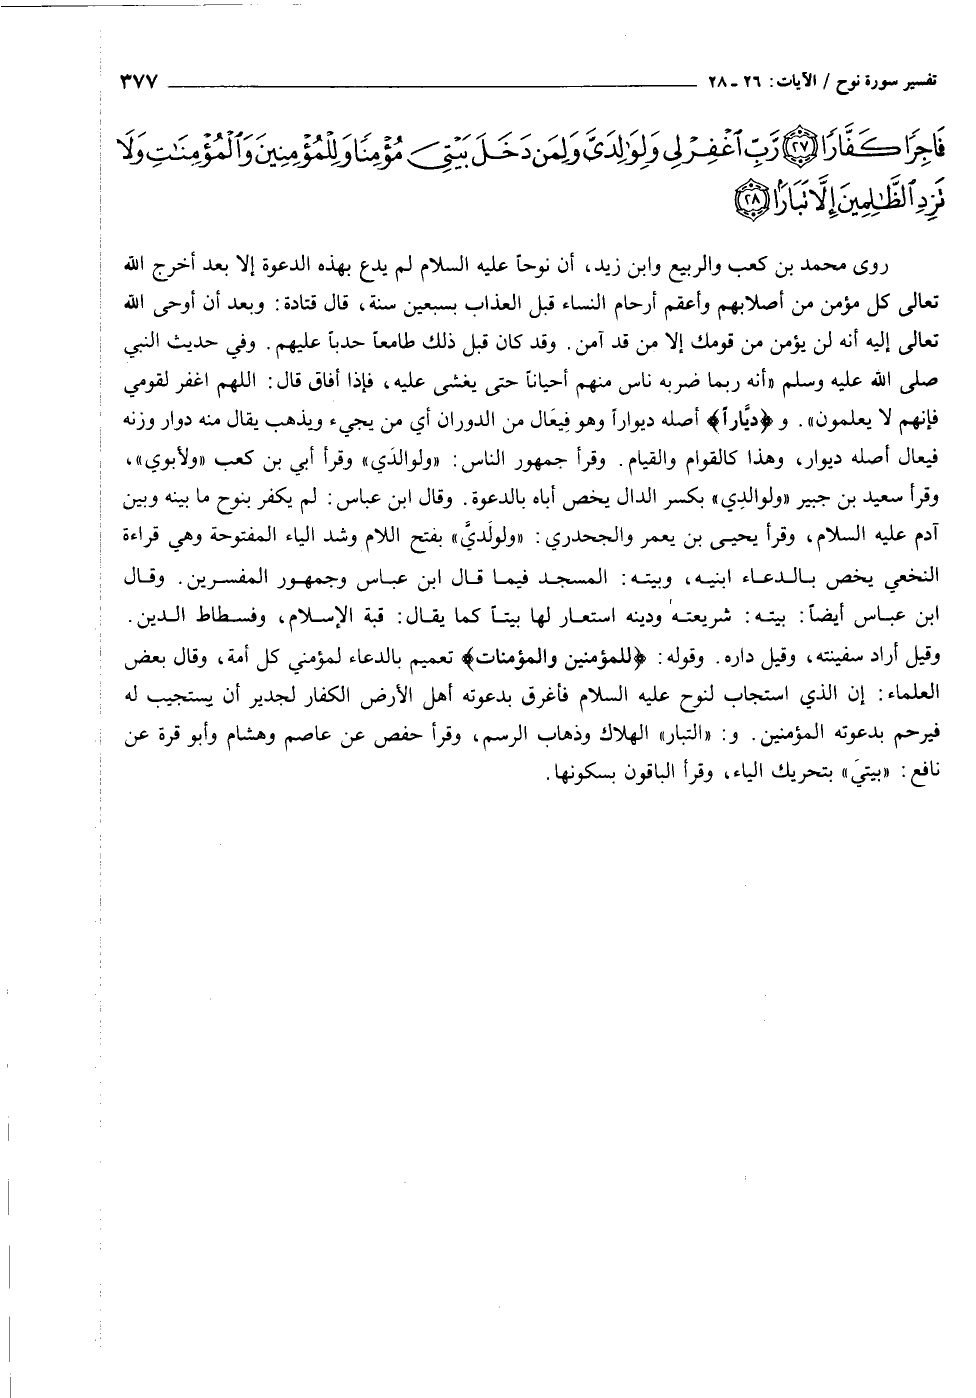 تفسير سورة نوح / الآيات: ٢٦ ـ ٢٨ ٣٧٧
فَاجِرًا كَفَّارًا ﴿٢٧﴾ رَّبِّ ٱغْفِرْ لِى وَلِوَٰلِدَىَّ وَلِمَن دَخَلَ بَيْتِىَ مُؤْمِنًا وَلِلْمُؤْمِنِينَ وَٱلْمُؤْمِنَٰتِ وَلَا
تَزِدِ ٱلظَّٰلِمِينَ إِلَّا تَبَارًا ﴿٢٨﴾
روى محمد بن كعب والربيع وابن زيد، أن نوحاً عليه السلام لم يدع بهذه الدعوة إلا بعد أخرج الله
تعالى كل مؤمن من أصلابهم وأعقم أرحام النساء قبل العذاب بسبعين سنة، قال قتادة: وبعد أن أوحى الله
تعالى إليه أنه لن يؤمن من قومك إلا من قد آمن. وقد كان قبل ذلك طامعاً حدباً عليهم. وفي حديث النبي
صلى الله عليه وسلم «أنه ربما ضربه ناس منهم أحياناً حتى يغشى عليه، فإذا أفاق قال: اللهم اغفر لقومي
فإنهم لا يعلمون». و ﴿ديَّاراً﴾ أصله ديواراً وهو فِيعَال من الدوران أي من يجيء ويذهب يقال منه دوار وزنه
فيعال أصله ديوار، وهذا كالقوام والقيام. وقرأ جمهور الناس: «ولوالدَي» وقرأ أبي بن كعب «ولأبوي»،
وقرأ سعيد بن جبير «ولوالدِي» بكسر الدال يخص أباه بالدعوة. وقال ابن عباس: لم يكفر بنوح ما بينه وبين
آدم عليه السلام، وقرأ يحيى بن يعمر والجحدري: «ولولَديَّ» بفتح اللام وشد الياء المفتوحة وهي قراءة
النخعي يخص بالدعاء ابنيه، وبيته: المسجد فيما قال ابن عباس وجمهور المفسرين. وقال
ابن عباس أيضاً: بيته: شريعته ودينه استعار لها بيتاً كما يقال: قبة الإسلام، وفسطاط الدين.
وقيل أراد سفينته، وقيل داره. وقوله: ﴿للمؤمنين والمؤمنات﴾ تعميم بالدعاء لمؤمني كل أمة، وقال بعض
العلماء: إن الذي استجاب لنوح عليه السلام فأغرق بدعوته أهل الأرض الكفار لجدير أن يستجيب له
فيرحم بدعوته المؤمنين. و: «التبار» الهلاك وذهاب الرسم، وقرأ حفص عن عاصم وهشام وأبو قرة عن
نافع: «بيتيَ» بتحريك الياء، وقرأ الباقون بسكونها.